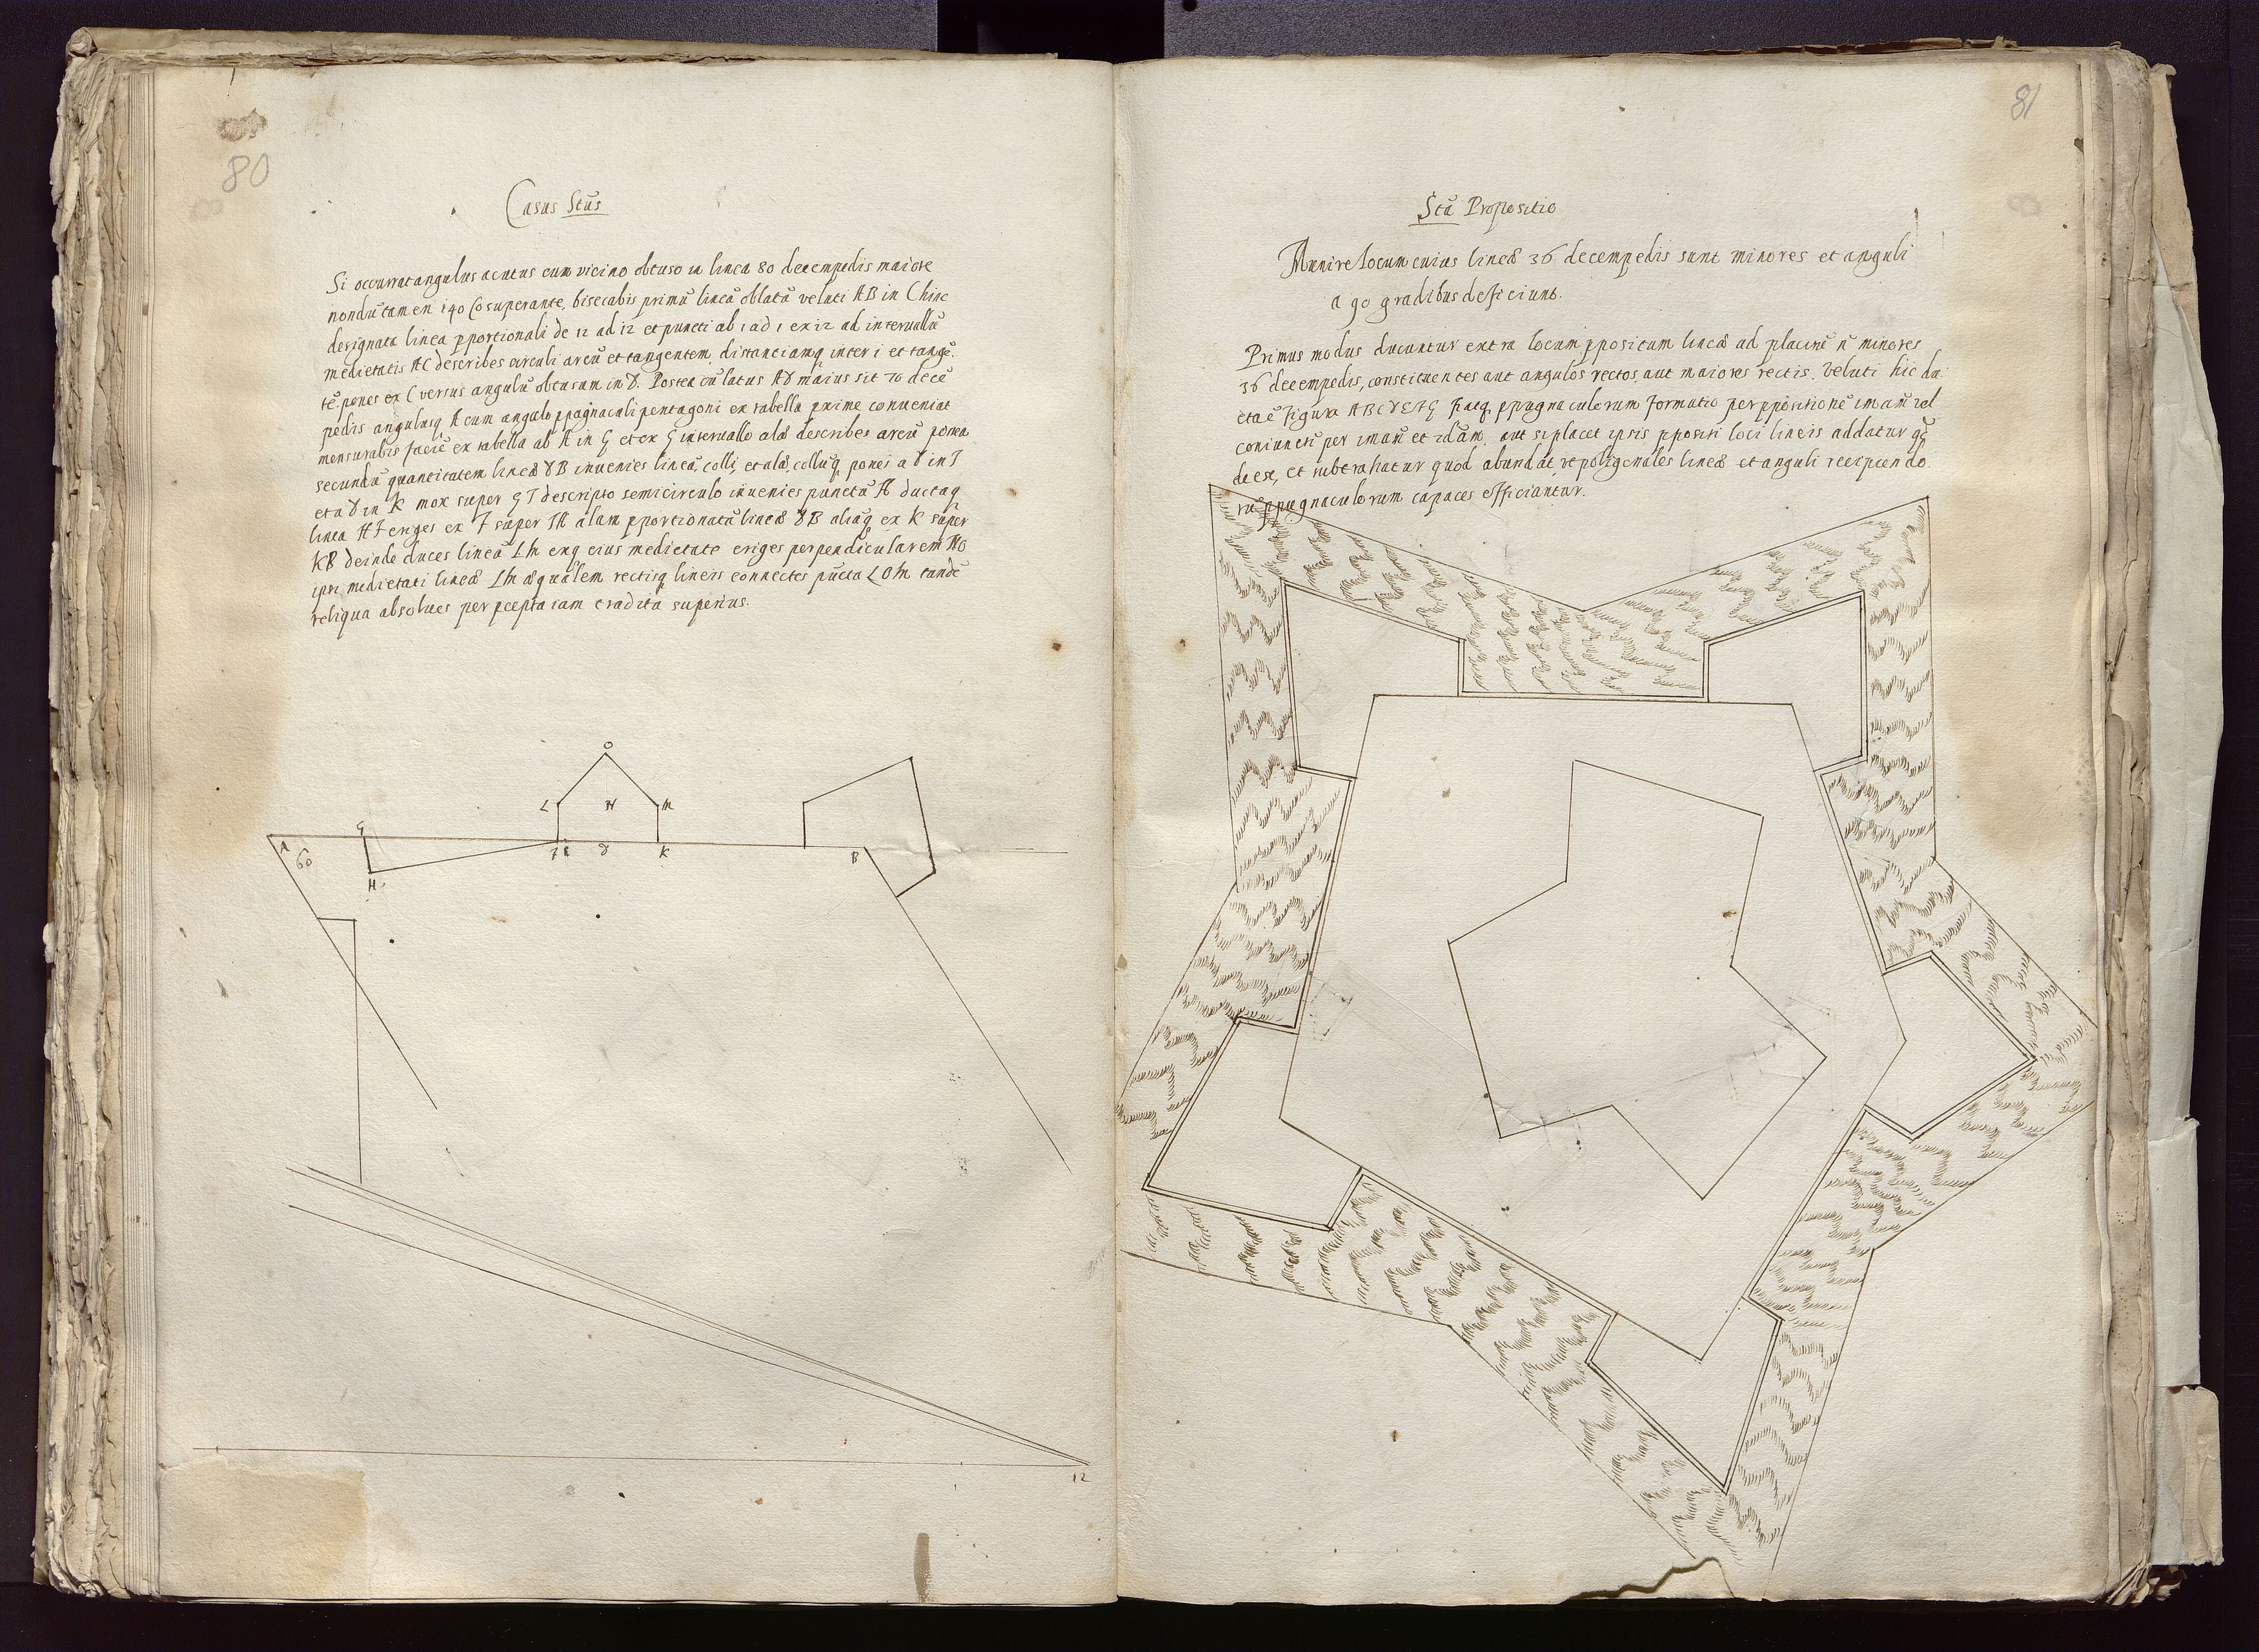 80
Casus Stus
Si occurrat angulus acutus cum vicino obtuso in linea 80 decempedis maiore
nondū tamen 140 superante, bisecabis primū lineā oblatā veluti AB in C hinc
designata linea pportionali de 12 ad 12 et puncti ab 1 ad 1 ex 12 ad interuallū
medietatis AC describes circuli arcū et tangentem, distantiamq inter 1 et tangē.
tē pones ex C versus angulū obtusum in D. Postea cū latus AD maius sit 70 decē
pedis angulusq A cum angulo ppugnaculi pentagoni ex tabella prime conueniat
mensurabis faciē ex tabella ab A in G et ex G interuallo alæ describes arcū postea
secundū quantitatem lineæ DB inuenies lineā, colli, et alæ, collūq pones a D in I
et a D in K mox super GI descripto semicirculo inuenies punctū H ductaq
linea HI eriges ex I super IA alam pportionatā lineæ DB aliāq ex K super
KB deinde duces lineā LM exq eius medietate eriges perpendicularem NO
ipsi medietati lineæ LM æqualem rectisq lineis connectes pūcta LOM tandē
reliqua absolues per pcepta iam tradita superius.
O
L N M
A G
60 I D K B
H
12
81
Sta Propositio
Munire locum cuius lineæ 36 decempedis sunt minores et anguli
a 90 gradibus deficiunt.
Primus modus ducantur extra locum ppositum lineæ ad placitū ñ minores
36 decempedis, constituentes aut angulos rectos, aut maiores rectis. Veluti hic du
cta ē figura ABCDEFG fiatq ppugnaculorum formatio per ppositionē imam vel
coniuncti per imam et 2dam, aut si placet ipsis ppositi loci lineis addatur qd
deest, et subtrahatur quod abundat vt poligonales lineæ et anguli recipiendo
rū ppugnaculorum capaces efficiantur.